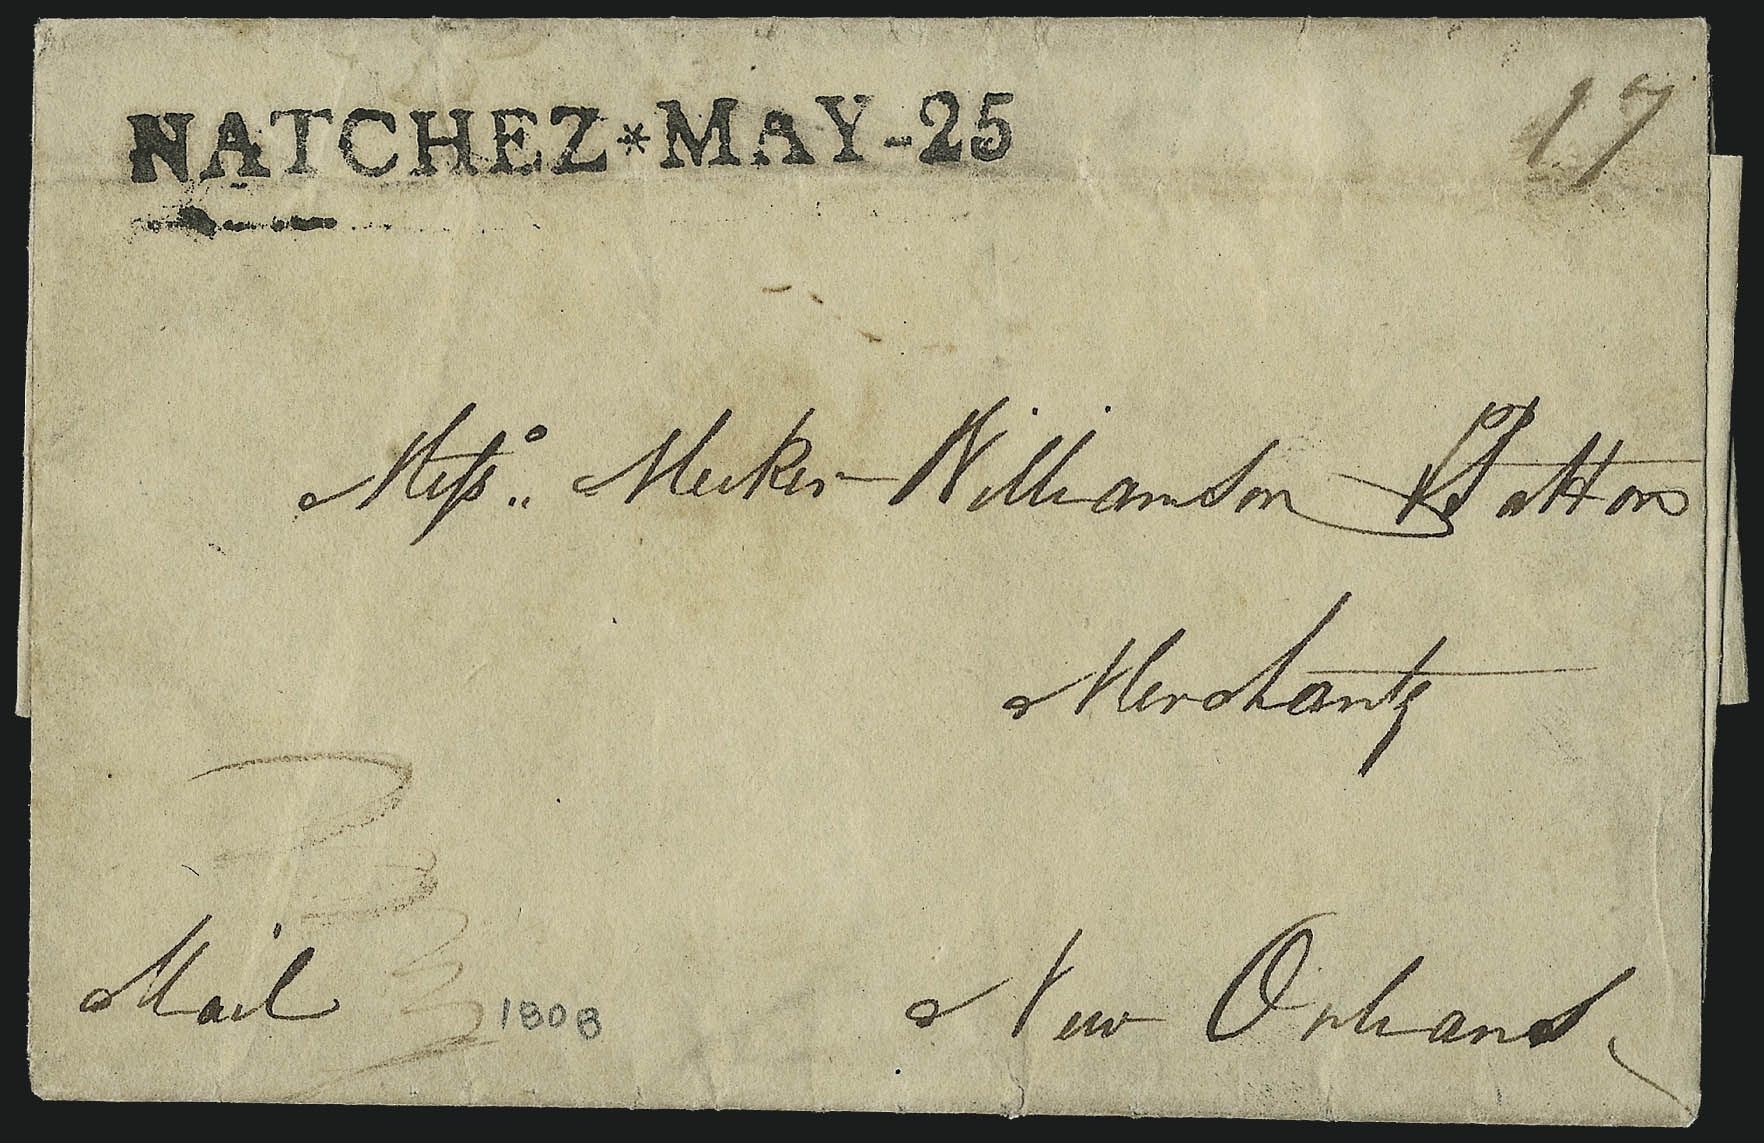 NATCHEZ*MAY-25
17
Messrs. Meeker Williamson & Patton
Merchants
Mail
1808
New Orleans